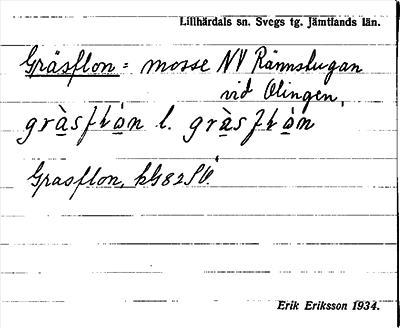 Lillhärdals sn. Svegs tg. Jämtlands län.
Gräsflon = mosse NV Rämnstugan
vid Olingen.
grà̲sfḷà̲n l. grà̲sfḷà̲n
Grasflon, kG82SV.
Erik Eriksson 1934.